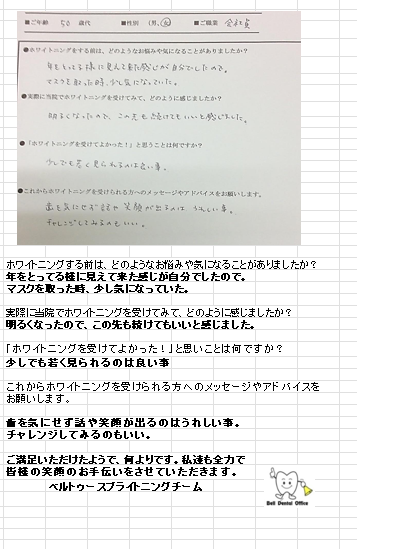 ■ご年齢 50 歳代 ■性別 (男、女) ■ご職業 会社員
●ホワイトニングをする前は、どのようなお悩みや気になることがありましたか?
年をとってる様に見えて来た感じが自分でしたので。
マスクを取った時、少し気になっていた。
●実際に当院でホワイトニングを受けてみて、どのように感じましたか?
明るくなったので、この先も続けてもいいと感じました。
●「ホワイトニングを受けてよかった！」と思うことは何ですか?
少しでも若く見られるのは良い事。
●これからホワイトニングを受けられる方へのメッセージやアドバイスをお願いします。
歯を気にせず話や笑顔が出るのは うれしい事。
チャレンジしてみるのもいい。
ホワイトニングする前は、どのようなお悩みや気になることがありましたか？
年をとってる様に見えて来た感じが自分でしたので。
マスクを取った時、少し気になっていた。
実際に当院でホワイトニングを受けてみて、どのように感じましたか？
明るくなったので、この先も続けてもいいと感じました。
「ホワイトニングを受けてよかった！」と思いことは何ですか？
少しでも若く見られるのは良い事
これからホワイトニングを受けられる方へのメッセージやアドバイスを
お願いします。
歯を気にせず話や笑顔が出るのはうれしい事。
チャレンジしてみるのもいい。
ご満足いただけたようで、何よりです。私達も全力で
皆様の笑顔のお手伝いをさせていただきます。
ベルトゥースブライトニングチーム
Bell Dental Office